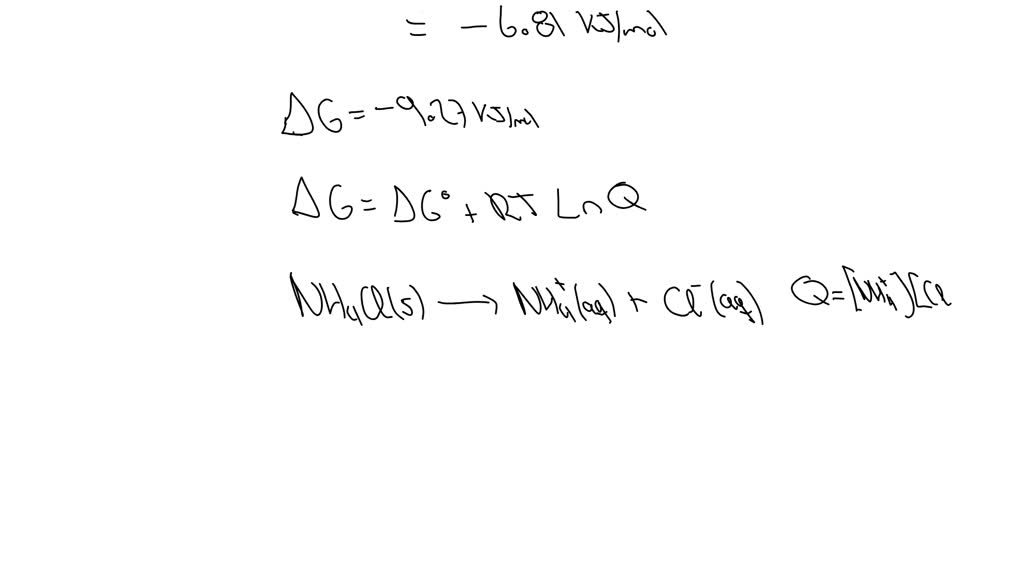 = -6.81 KJ/mol
ΔG = -9.27 KJ/mol
ΔG = ΔG° + RT Ln Q
NH₄Cl(s) ⟶ NH₄⁺(aq) + Cl⁻(aq) Q=[NH₄⁺][Cl